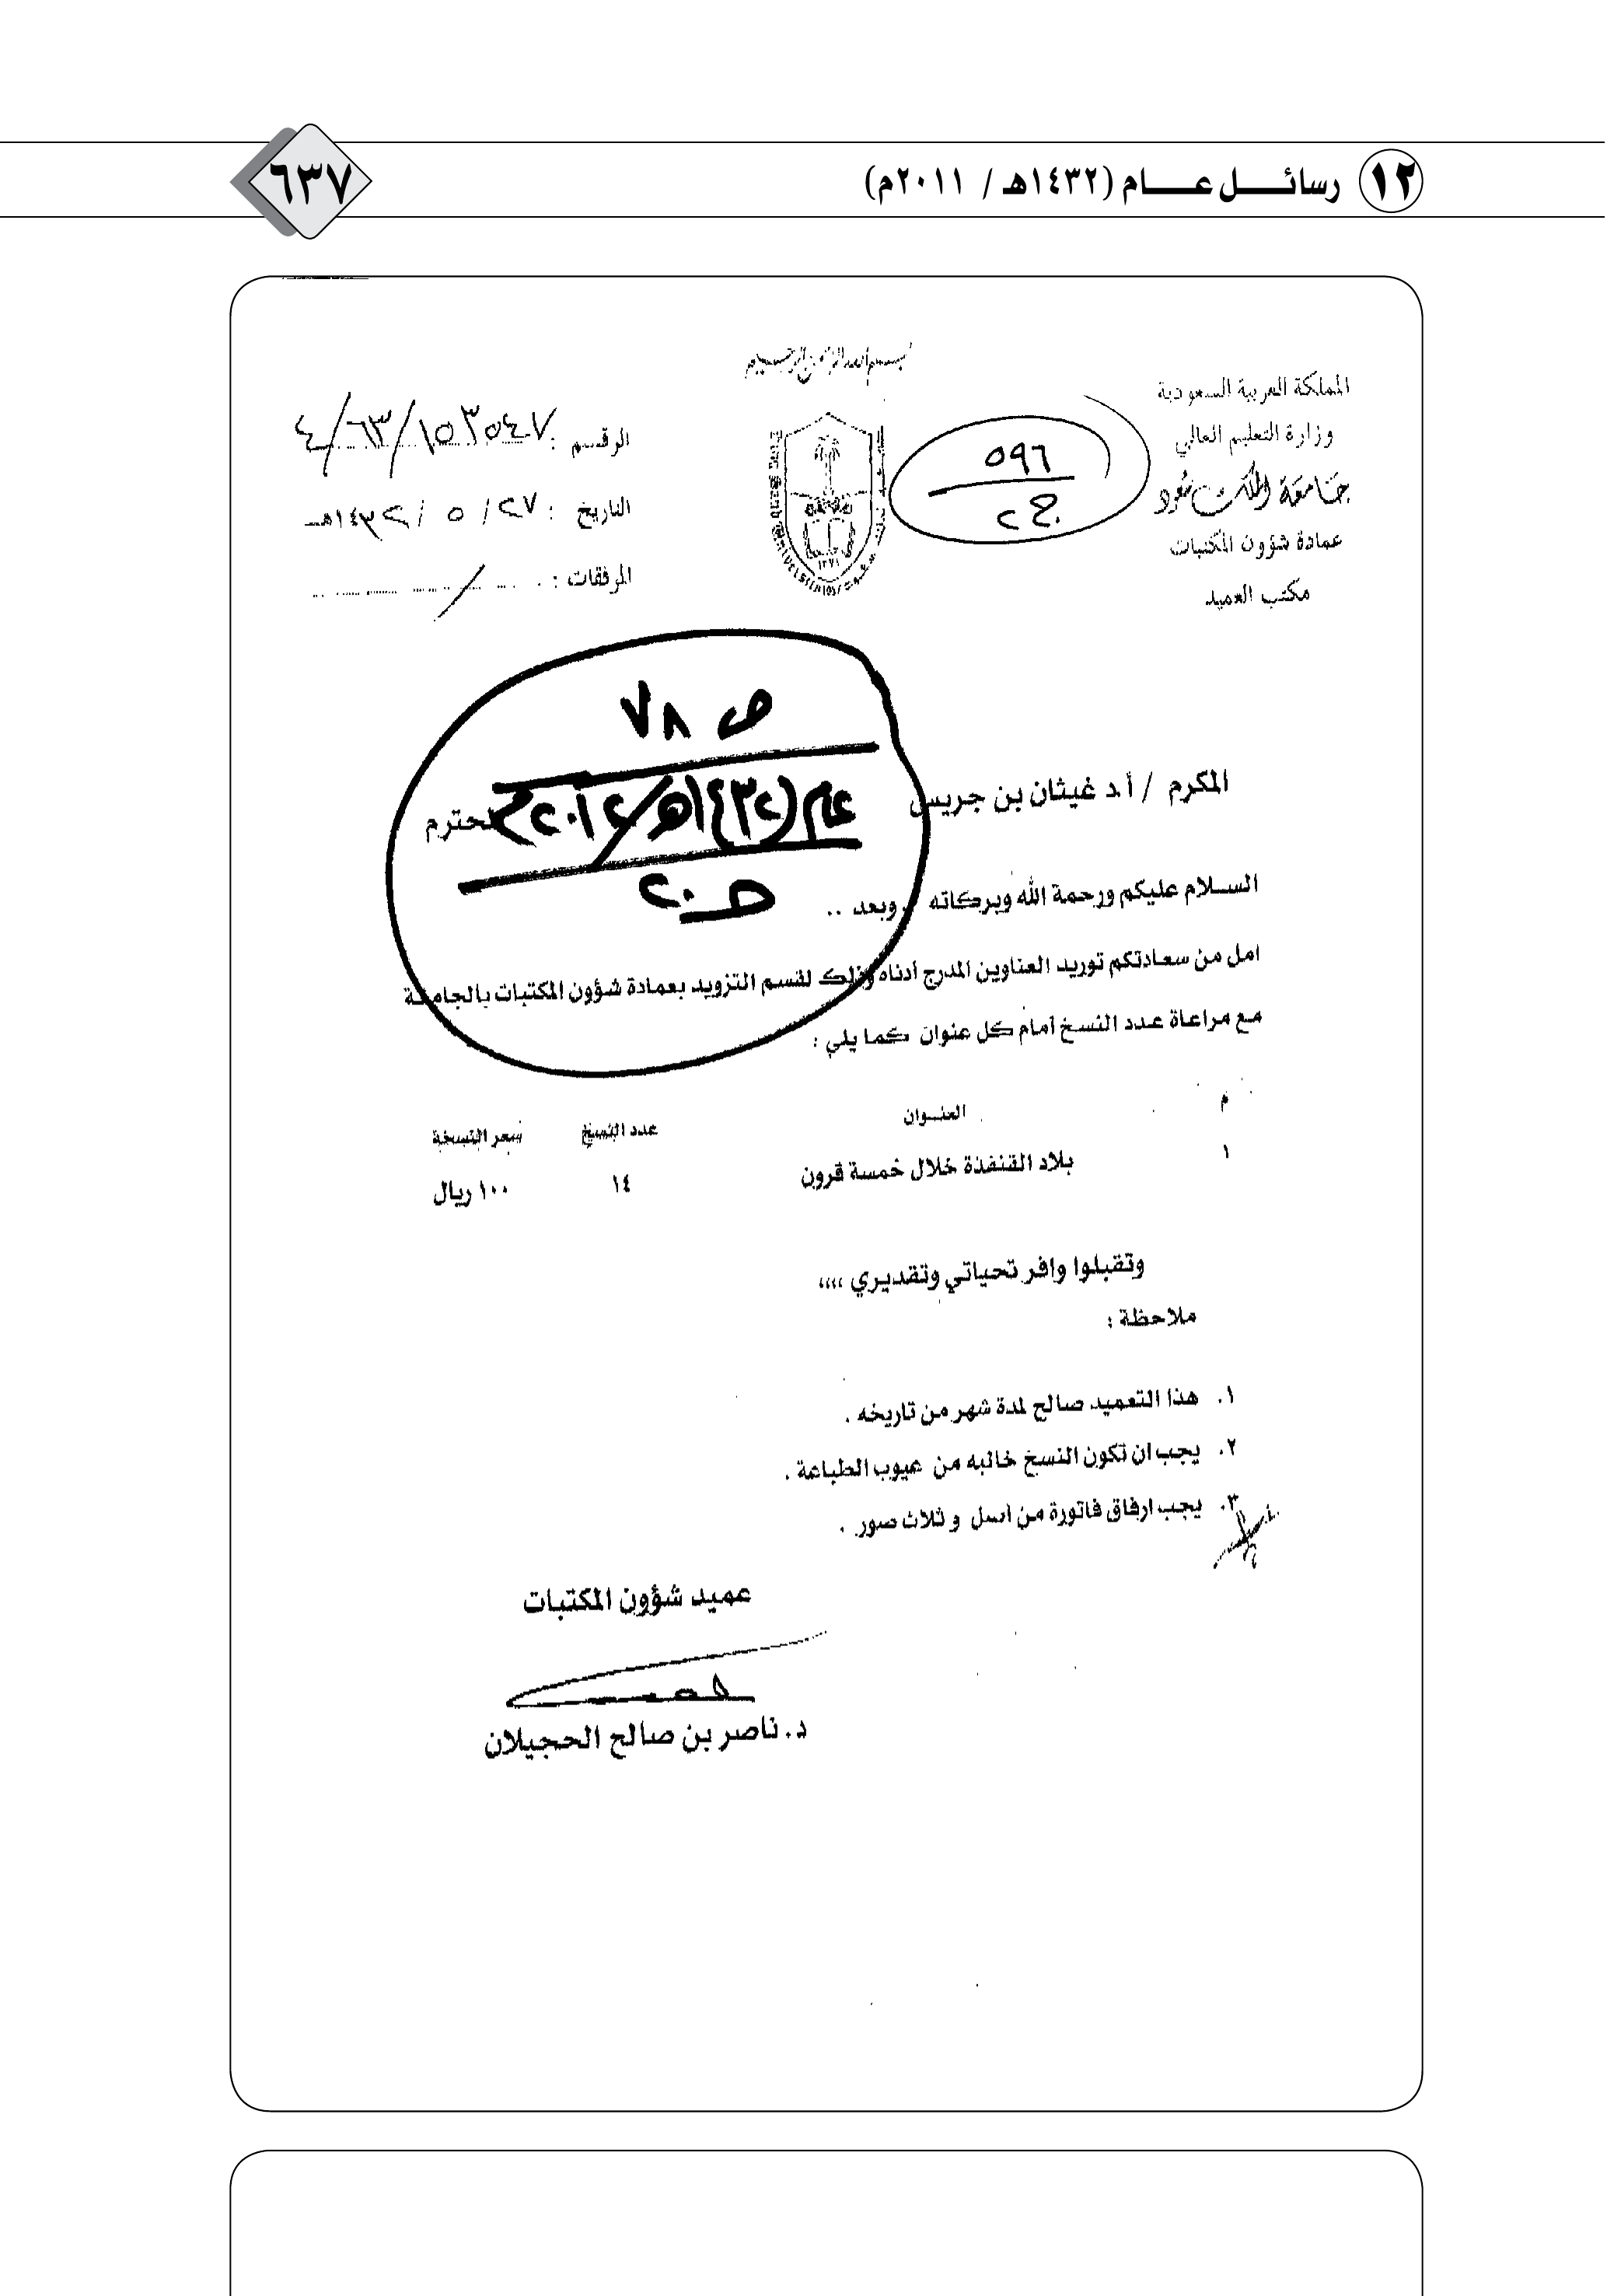 ١٢ رسائل عام (١٤٣٢هـ / ٢٠١١م)
٦٣٧
بسم الله الرحمن الرحيم
المملكة العربية السعودية
وزارة التعليم العالي
جامعة الملك سعود
عمادة شؤون المكتبات
مكتب العميد
٥٩٦
ج ٢
١٣٧٧
الرقم :
التاريخ : ٢٧ / ٥ / ١٤٣٢هـ
المرفقات :
ص ٧٨
المكرم / أ.د غيثان بن جريس المحترم
السلام عليكم ورحمة الله وبركاته .. وبعد ..
امل من سعادتكم توريد العناوين المدرج أدناه وذلك لقسم التزويد بعمادة شؤون المكتبات بالجامعة
مع مراعاة عدد النسخ أمام كل عنوان كما يلي :
م العنوان عدد النسخ سعر النسخة
١ بلاد القنفذة خلال خمسة قرون ١٤ ١٠٠ ريال
وتقبلوا وافر تحياتي وتقديري ،،،،
ملاحظة :
١. هذا التعميد صالح لمدة شهر من تاريخه .
٢. يجب ان تكون النسخ خاليه من عيوب الطباعة .
٣. يجب ارفاق فاتورة من أصل و ثلاث صور .
عميد شؤون المكتبات
د. ناصر بن صالح الحجيلان